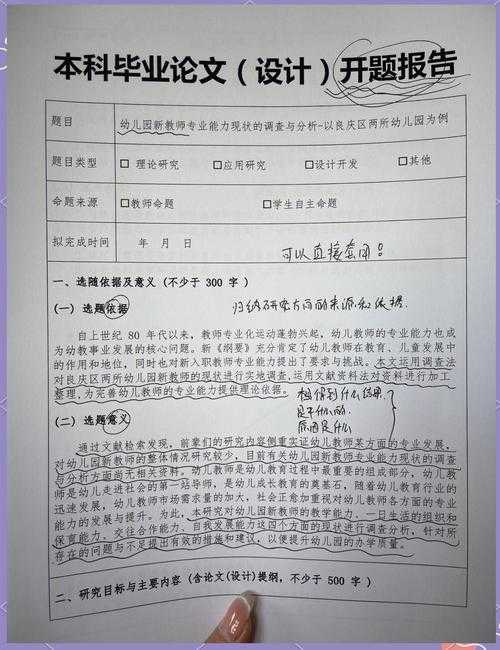 本科毕业论文（设计）开题报告
题目 幼儿园新教师专业能力现状的调查与分析-以良庆区两所幼儿园为例
题目类型 □ 理论研究 □应用研究 □设计开发 □其他
命题来源 □教师命题 □学生自主命题
拟完成时间 年 月 日
可以直接套用！
一、选随依据及意义（不少于 300 字）
（一）选题依据
归纳研究方向的来源和依据.
自上世纪 80 年代以来，教师专业化运动蓬勃兴起，幼儿教师的专业能力也成
为幼教事业发展的核心问题。新《纲要》充分肯定了幼儿教师在教育、儿童发展中
的作用和地位，同时也对新入职教师专业能力提出了要求与挑战。本文运用调查法
对良庆区两所幼儿园新教师的现状进行实地调查，运用文献资料法对资料进行加工
整理，为完善幼儿教师的专业能力提供理论依据。
想得到什么结果
是干什么的
原因是什么
（二）选题意义
通过文献检索发现，前辈们的研究内容侧重实证幼儿教师某方面的专业发展，
对幼儿园新教师的整体情况研究较少，目前有关幼儿园新教师专业能力现状的调查
与分析方面尚无相关资料。幼儿教师是幼儿教育过程中最重要的组成部分，幼儿教
师是幼儿走进社会的第一站导师，是幼儿成长教育的奠基石，随着幼儿教育行业的
迅速发展，幼儿教师市场需求量的加大，社会正愈加重视对幼儿教师各方面的专业
能力的发展与提升。为此，本研究对幼儿园新教师的教学能力、一日生活的组织和
保育能力、交往合作能力、自我发展能力这四个方面的现状进行调查分析，针对所
存在的问题与不足提出有效的措施和建议，以便提升幼儿园的办学质量。
二、研究目标与主要内容（含论文(设计)提纲，不少于 500 字）